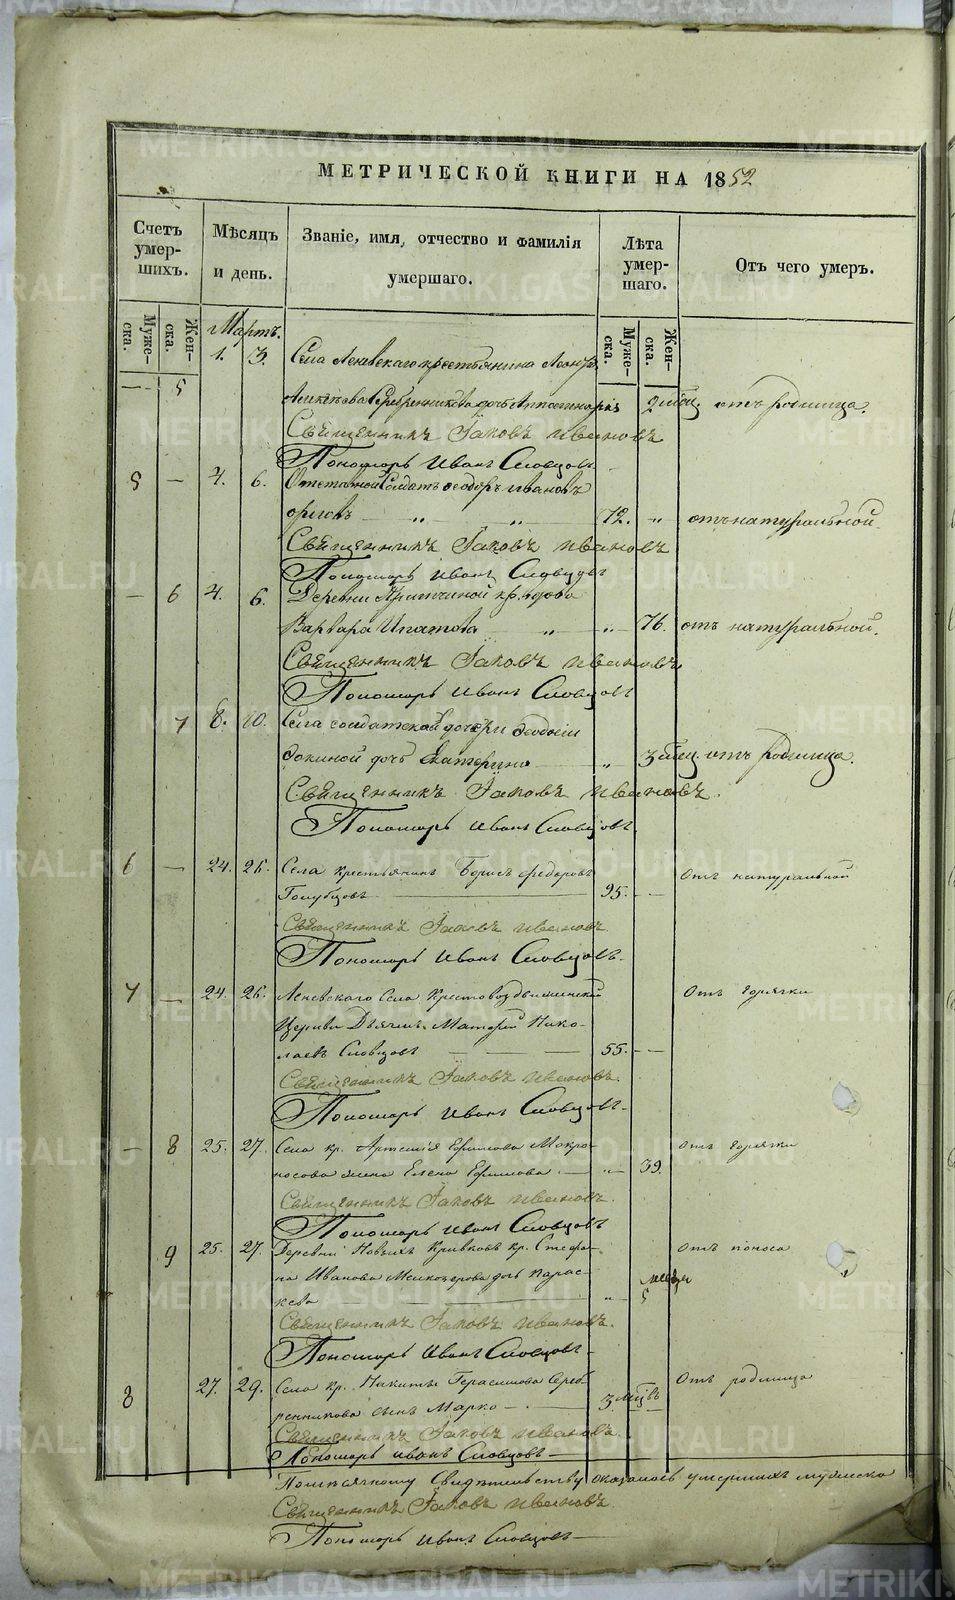 МЕТРИЧЕСКОЙ КНИГИ НА 1852
Счетъ умер- шихъ. Муже- ска. Жен- ска.
Мѣсяцъ и день.
Званіе, имя, отчество и фамилія умершаго.
Лѣта умер- шаго. Муже- ска. Жен- ска.
Отъ чего умеръ.
Мартъ.
— 5 1. 3. Села Леневскаго крестьянина
Серебренникова дочь 2 отъ родимца.
Священникъ Іаковъ Ивановъ
Пономарь Иванъ Словцовъ
5 — 4. 6. Отставной Солдатъ Ѳеодоръ Ивановъ
„ „ 72. „ отъ натуральной
Священникъ Іаковъ Ивановъ
Пономарь Иванъ Словцовъ
— 6 4. 6. Деревни кр. вдова
Варвара Ипатова „ „ 76. отъ натуральной.
Священникъ Іаковъ Ивановъ
Пономарь Иванъ Словцовъ
7 8. 10. Села солдатской дочери
дочь Екатерина „ 3 отъ родимца.
Священникъ Іаковъ Ивановъ.
Пономарь Иванъ Словцовъ
6 — 24. 26. Села крестьянинъ Борисъ Федоровъ Отъ натуральной
Голубцовъ 95. —
Священникъ Іаковъ Ивановъ
Пономарь Иванъ Словцовъ.
7 — 24. 26. Леневскаго Села Крестовоздвиженской Отъ горячки
Церкви Дьячекъ Нико-
лаевъ Словцовъ — — — 55. — —
Священникъ Іаковъ Ивановъ.
Пономарь Иванъ Словцовъ.
— 8 25. 27. Села кр. Артемія Ефимова Мокро- Отъ горячки
носова жена Елена Ефимова — „ 39.
Священникъ Іаковъ Ивановъ.
Пономарь Иванъ Словцовъ
9 25. 27. Деревни Новыхъ Кривковъ кр. Стефа- Отъ поноса
на Иванова дочь Парас-
кева — „ 5
Священникъ Іаковъ Ивановъ.
Пономарь Иванъ Словцовъ
8 27. 29. Села кр. Никиты Герасимова Сереб- Отъ родимца
ренникова сынъ Марко — 3 мцвъ
Священникъ Іаковъ Ивановъ.
Пономарь Иванъ Словцовъ
свидѣтельству оказалось умершихъ мужеска
Священникъ Іаковъ Ивановъ.
Пономарь Иванъ Словцовъ
METRIKI.GASO-URAL.RU